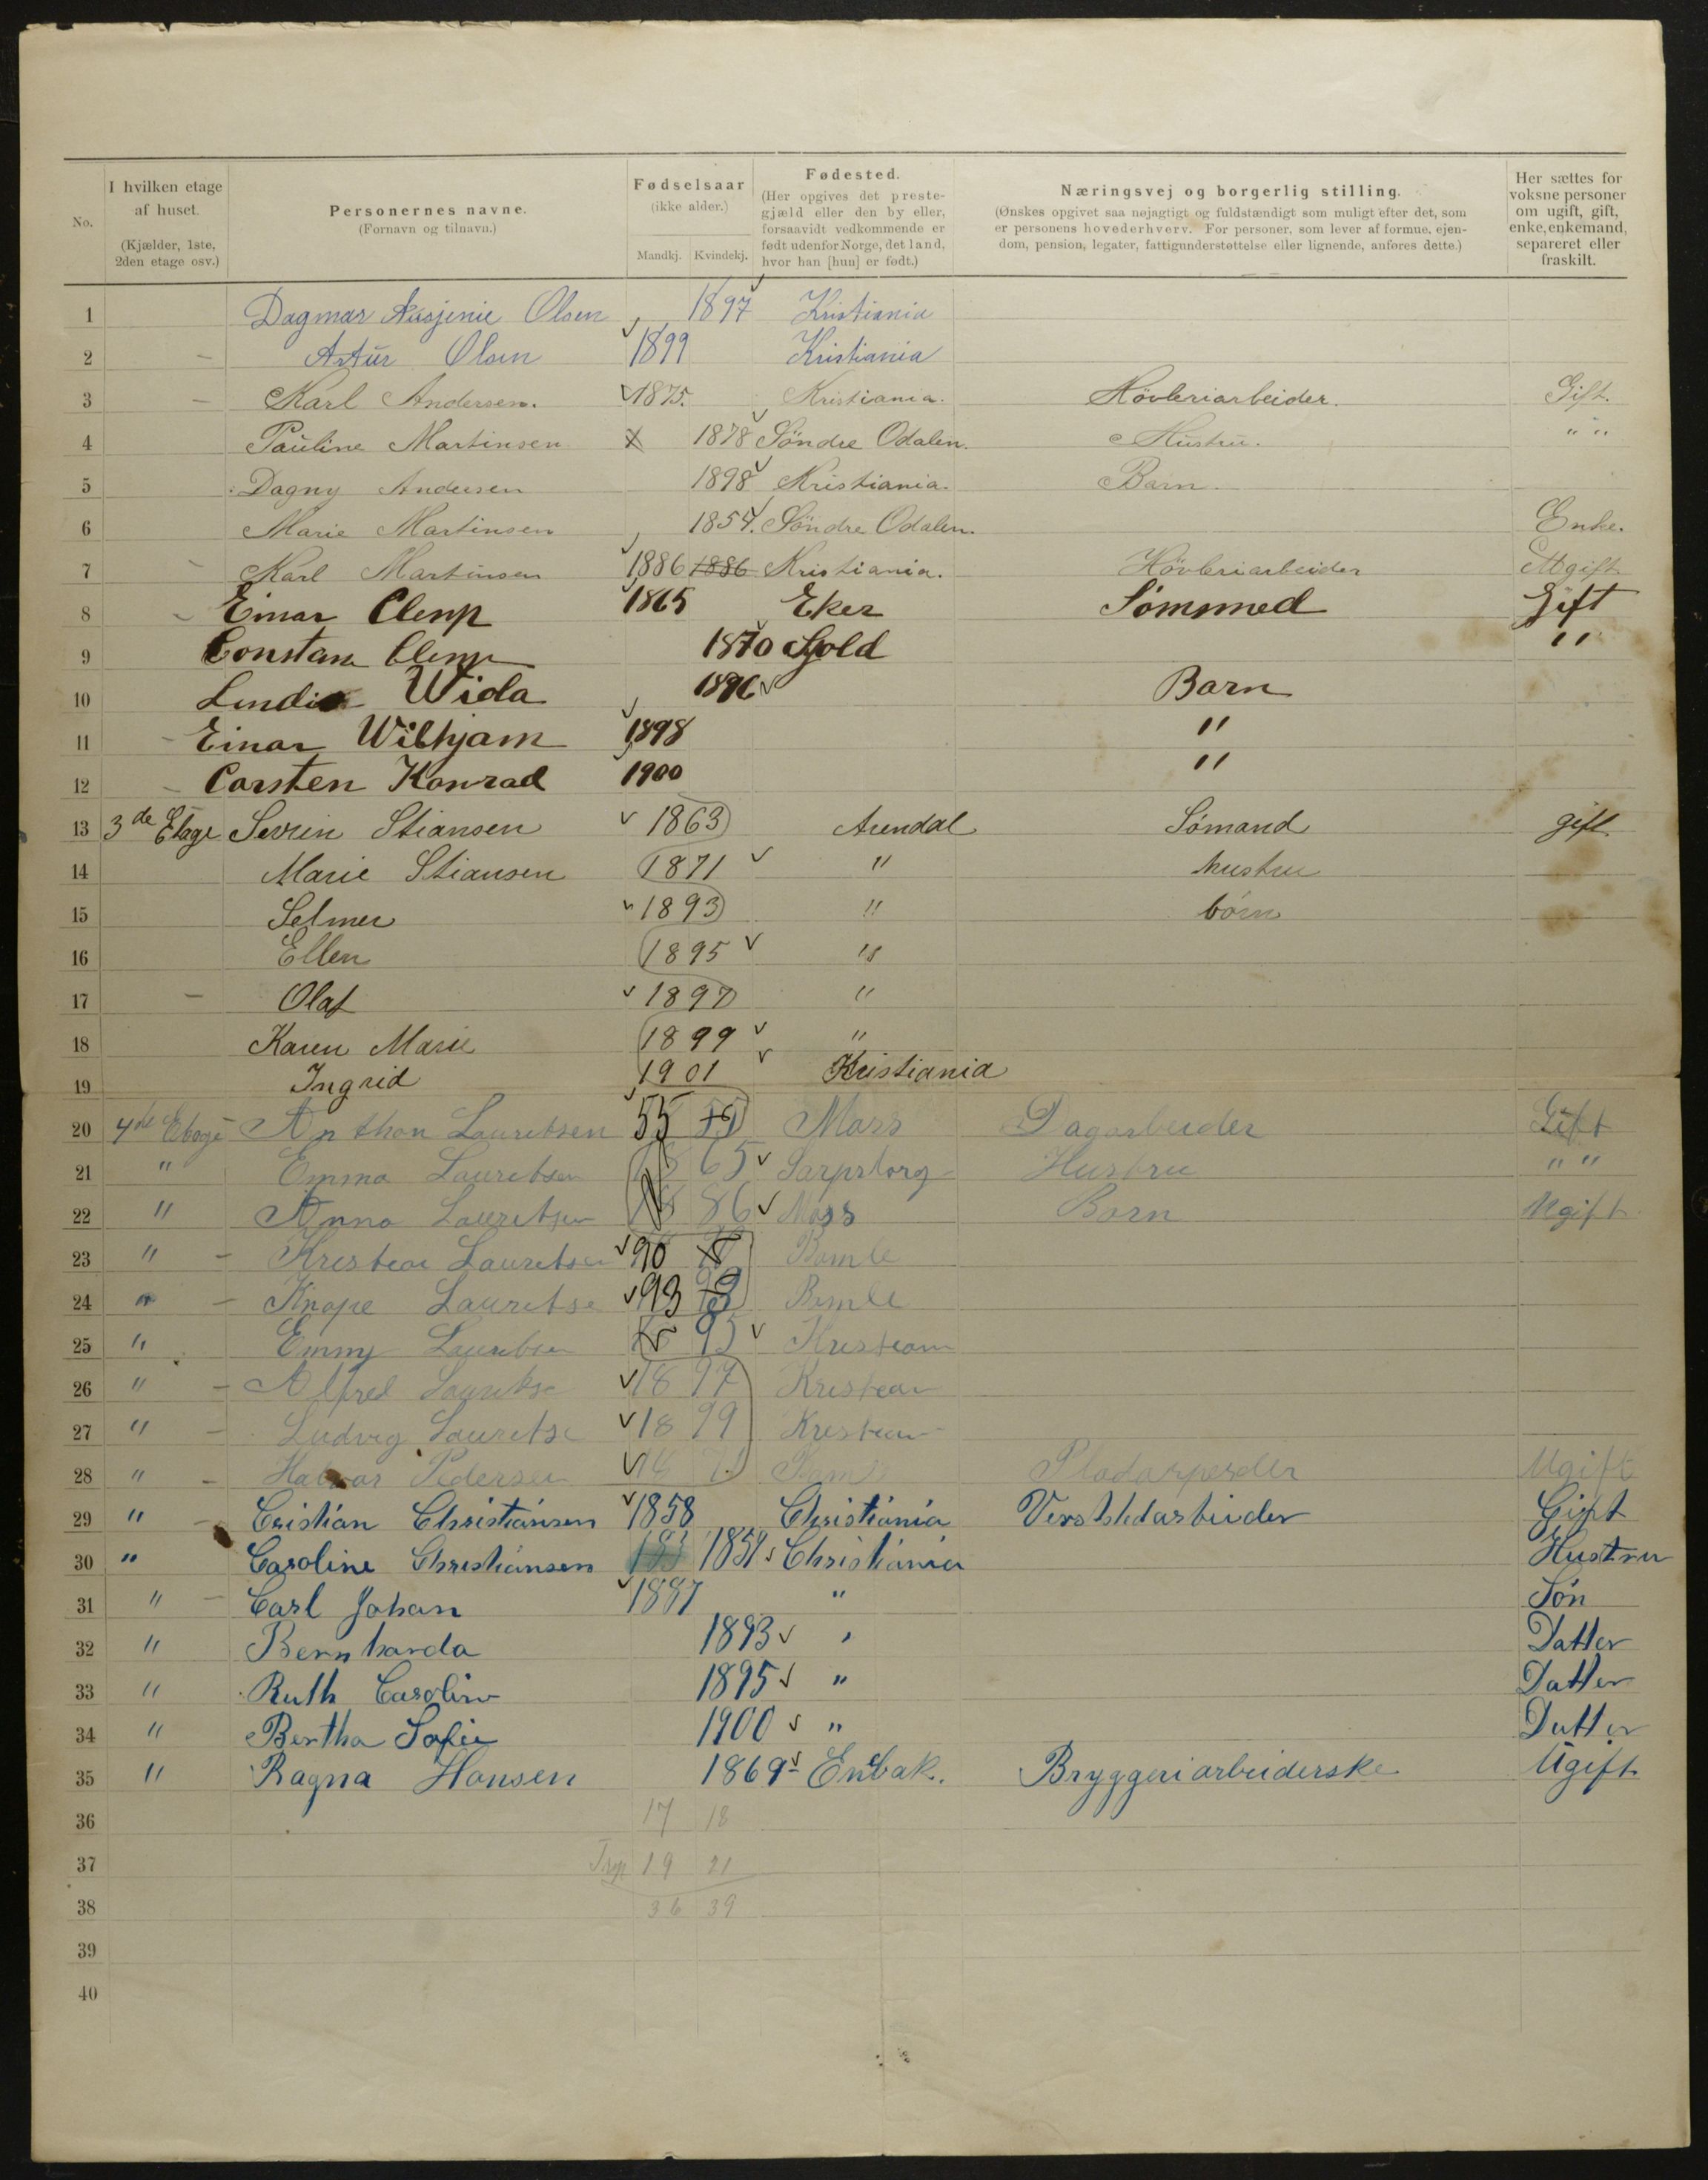 No. I hvilken etage af huset. (Kjælder, 1ste, 2den etage osv.) Personernes navne. (Fornavn og tilnavn.) Fødselsaar (ikke alder.) Mandkj. Kvindekj. Fødested. (Her opgives det prestegjæld eller den by eller, forsaavidt vedkommende er født udenfor Norge, det land, hvor han [hun] er født.) Næringsvej og borgerlig stilling. (Ønskes opgivet saa nøjagtigt og fuldstændigt som muligt efter det, som er personens hovederhverv. For personer, som lever af formue, ejendom, pension, legater, fattigunderstøttelse eller lignende, anføres dette.) Her sættes for voksne personer om ugift, gift, enke, enkemand, separeret eller fraskilt.
1 Dagmar Olsen 1897 Kristiania
2 - Artur Olsen 1899 Kristiania
3 - Karl Andersen. 1875. Kristiania. Høvleriarbeider. Gift.
4 Pauline Martinsen X 1878 Söndre Odalen. Hustru. " "
5 Dagny Andersen 1898 Kristiania. Barn.
6 Marie Martinsen 1854. Söndre Odalen. Enke.
7 - Karl Martinsen 1886 1886 Kristiania. Hövleriarbeider Ugift
8 - Einar Clemp 1865 Eker Sømmed Gift
9 Constan Clemp 1870 "
10 Wida 1896 Barn
11 - Einar Wilhjam 1898 "
12 - Carsten Konrad 1900 "
13 3de Etage Sevrin Stiansen 1863 Arendal Sømand gift
14 Marie Stiansen 1871 " hustru
15 Selmer 1893 " børn
16 Ellen 1895 "
17 - Olaf 1897 "
18 Karen Marie 1899 "
19 Ingrid 1901 Kristiania
20 4de Etage Anthon Lauritsen 55 55 Moss Dagarbeider Gift
21 " Emma Lauritsen 1865 Sarpsborg Hustru " "
22 " Anna Lauritsen 1886 Moss Barn Ugift
23 " - Lauritsen 90 Bamle
24 " - Lauritse 93 93 Bamle
25 " Emmy Lauritsen 1895 Kristian
26 " - Alfred Lauritse 1897 Kristian
27 " - Ludvig Lauritse 1899 Kristian
28 " - Pedersen Ugift
29 " - Cristian Christiansen 1858 Christiania Verkstedarbeider Gift
30 " Caroline Christiansen 1854 Christiania Hustru
31 " - Carl Johan 1887 " Søn
32 " Bernharda 1893 " Datter
33 " Ruth Carolin 1895 " Datter
34 " Bertha Sofie 1900 " Datter
35 " Ragna Hansen 1869 Enebak. Bryggeriarbeiderske Ugift
36 17 18
37 19 21
38 36 39
39
40